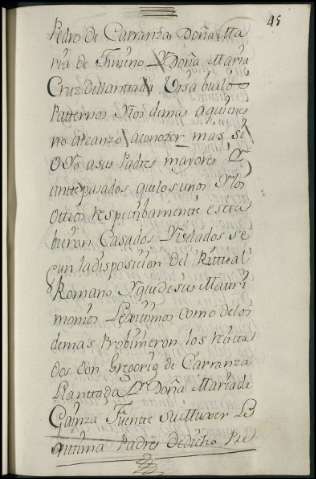 45
Pedro de Carranza Doña Ma
ria de
Y Doña Maria
Cruz
Paternos Y los demas aquienes
no alcanzo aconozer mas, si
Oyo asus Padres mayores Y
antepasados, que los unos Y los
Ottros respectibamente esttu
bieron Casados Y Velados se
gun la disposicion del Rittual
Romano, Y que de sus Mattri
monios Lexitimos como de los
demas Probinieron los Nactta
dos Don Gregorio de Carranza
Y Doña Maria de
Gainza Fuente su Muxer Le
gittima Padres de dicho Pre